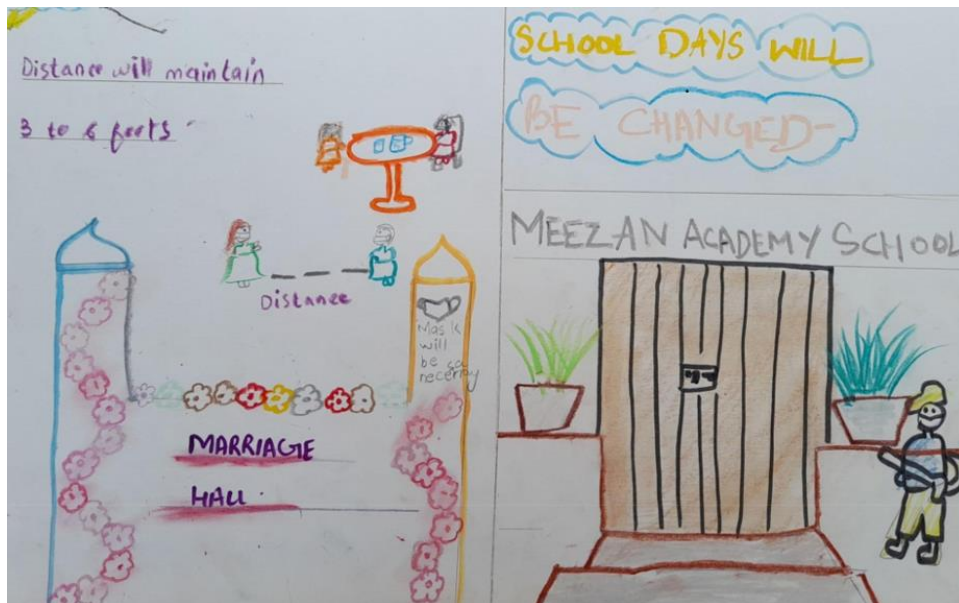 Distance will maintain
3 to 6 feets
Distance
Mask
will
be so
necerray
MARRIAGIE
HALL
SCHOOL DAYS WILL
BE CHANGED-
MEEZAN ACADEMY SCHOOL